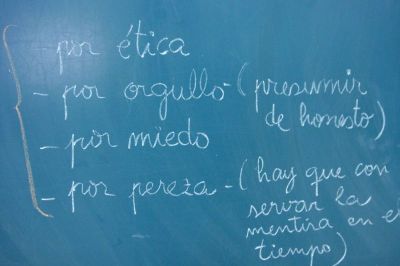 por ética
- por orgullo - (presumir
de honesto)
- por miedo
- por pereza - (hay que con
servar la
mentira en el
tiempo)